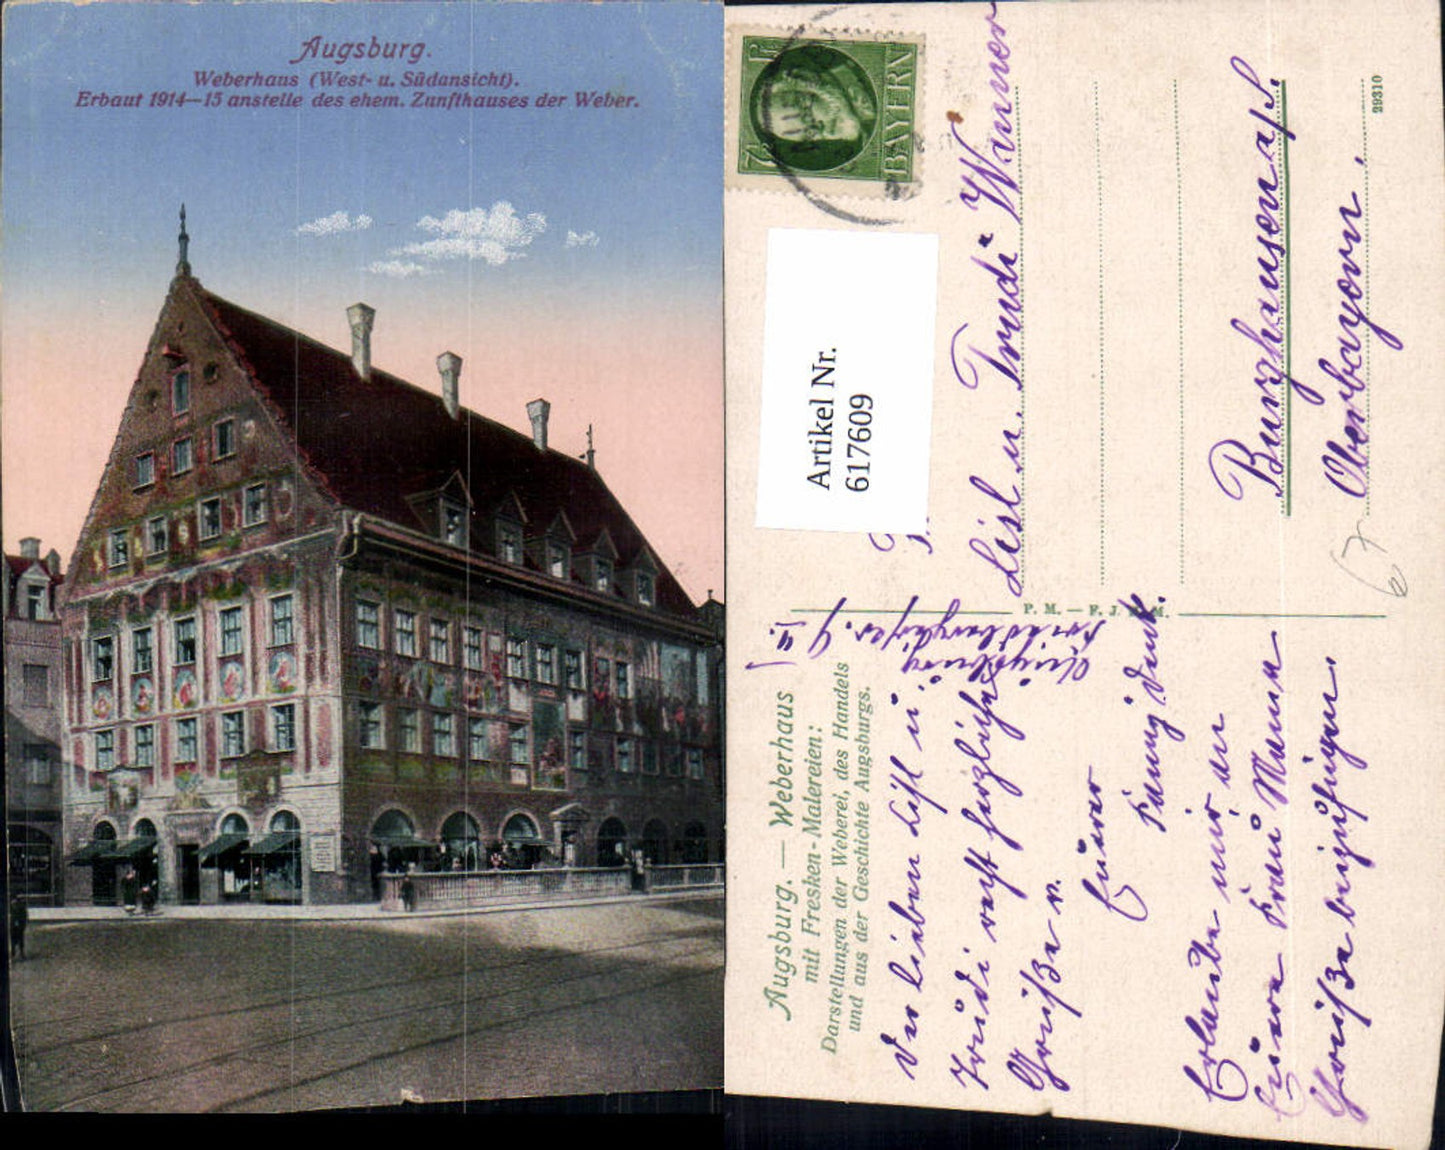 Augsburg.
Weberhaus (West- u. Südansicht).
Erbaut 1914—15 anstelle des ehem. Zunfthauses der Weber.
7½ Pf
BAYERN
Artikel Nr.
617609
Lisl u. Trudi Wimmer
Burghausen a/S.
Oberbayern.
29310
67
P. M. — F. J. M.
Augsburg. — Weberhaus
mit Fresken-Malereien:
Darstellungen der Weberei, des Handels
und aus der Geschichte Augsburgs.
Augsburg
lieben Lisl u.
Trudi recht herzliche
Grüße v.
Eurer
Fanny
Erlaube mir an
Euere Frau Mama
Grüße beizufügen